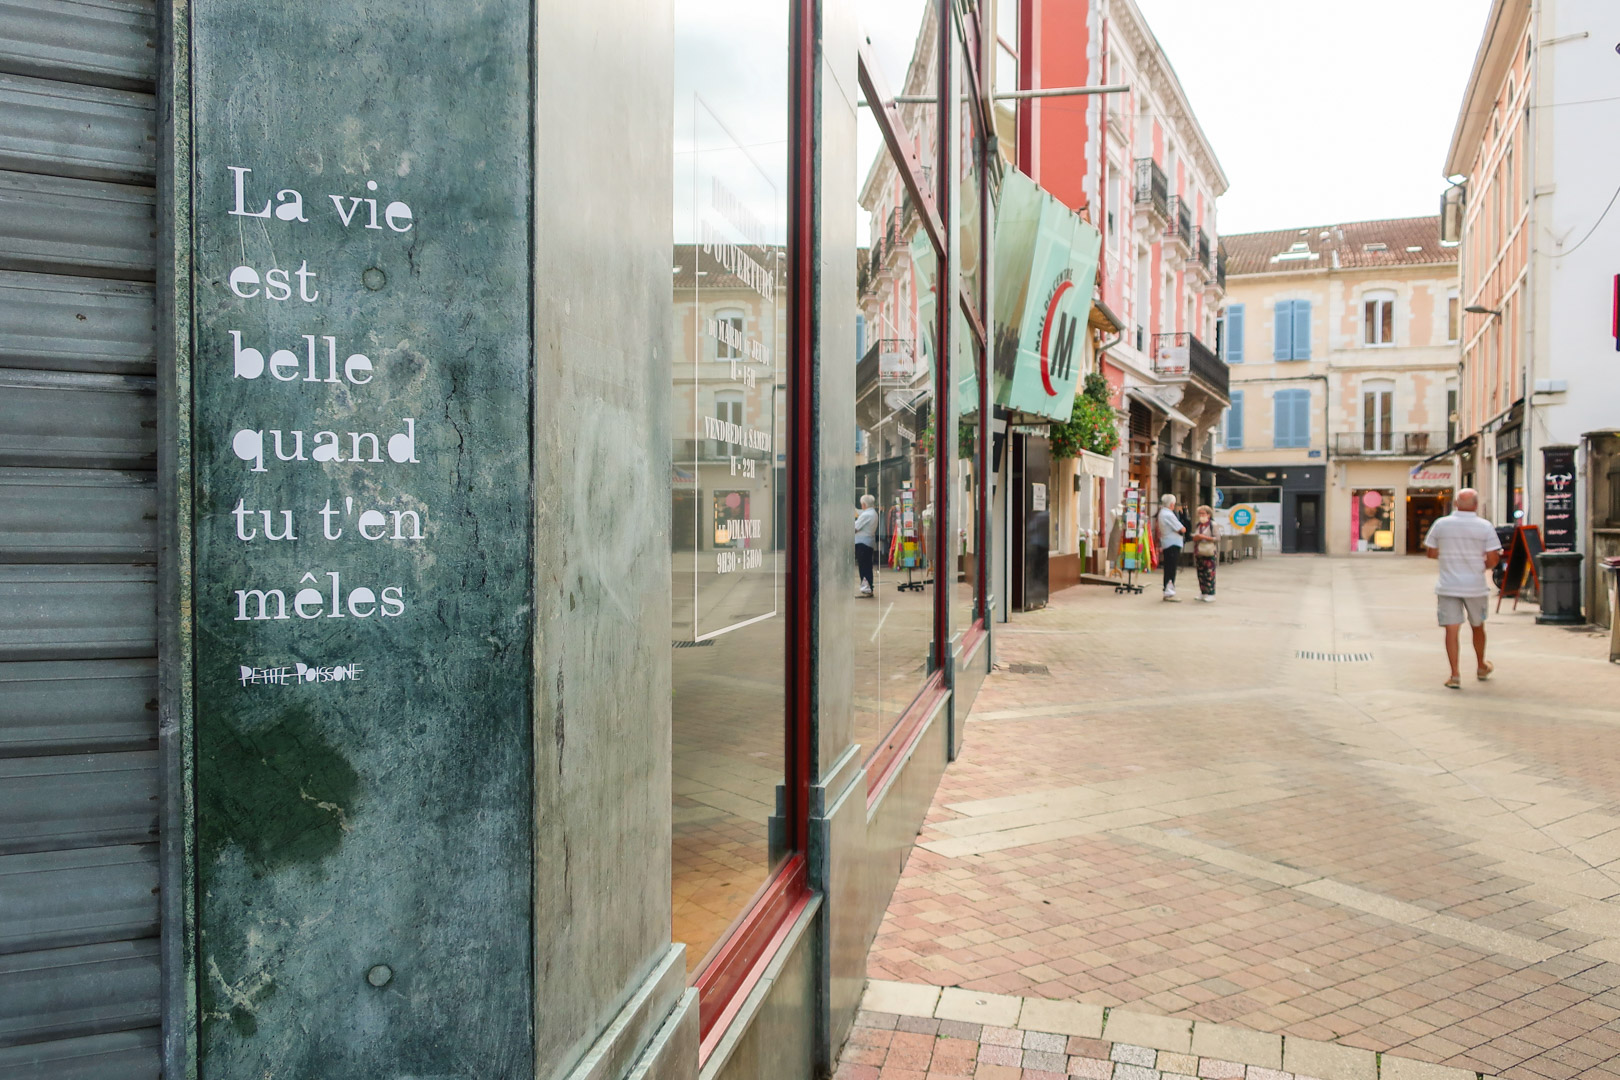 La vie
est
belle
quand
tu t'en
mêles
PETITE POISSONE
D'OUVERTURE
DU MARDI AU JEUDI
VENDREDI & SAMEDI
H - 22H
DIMANCHE
9H30 - 15H00
CM
Etam